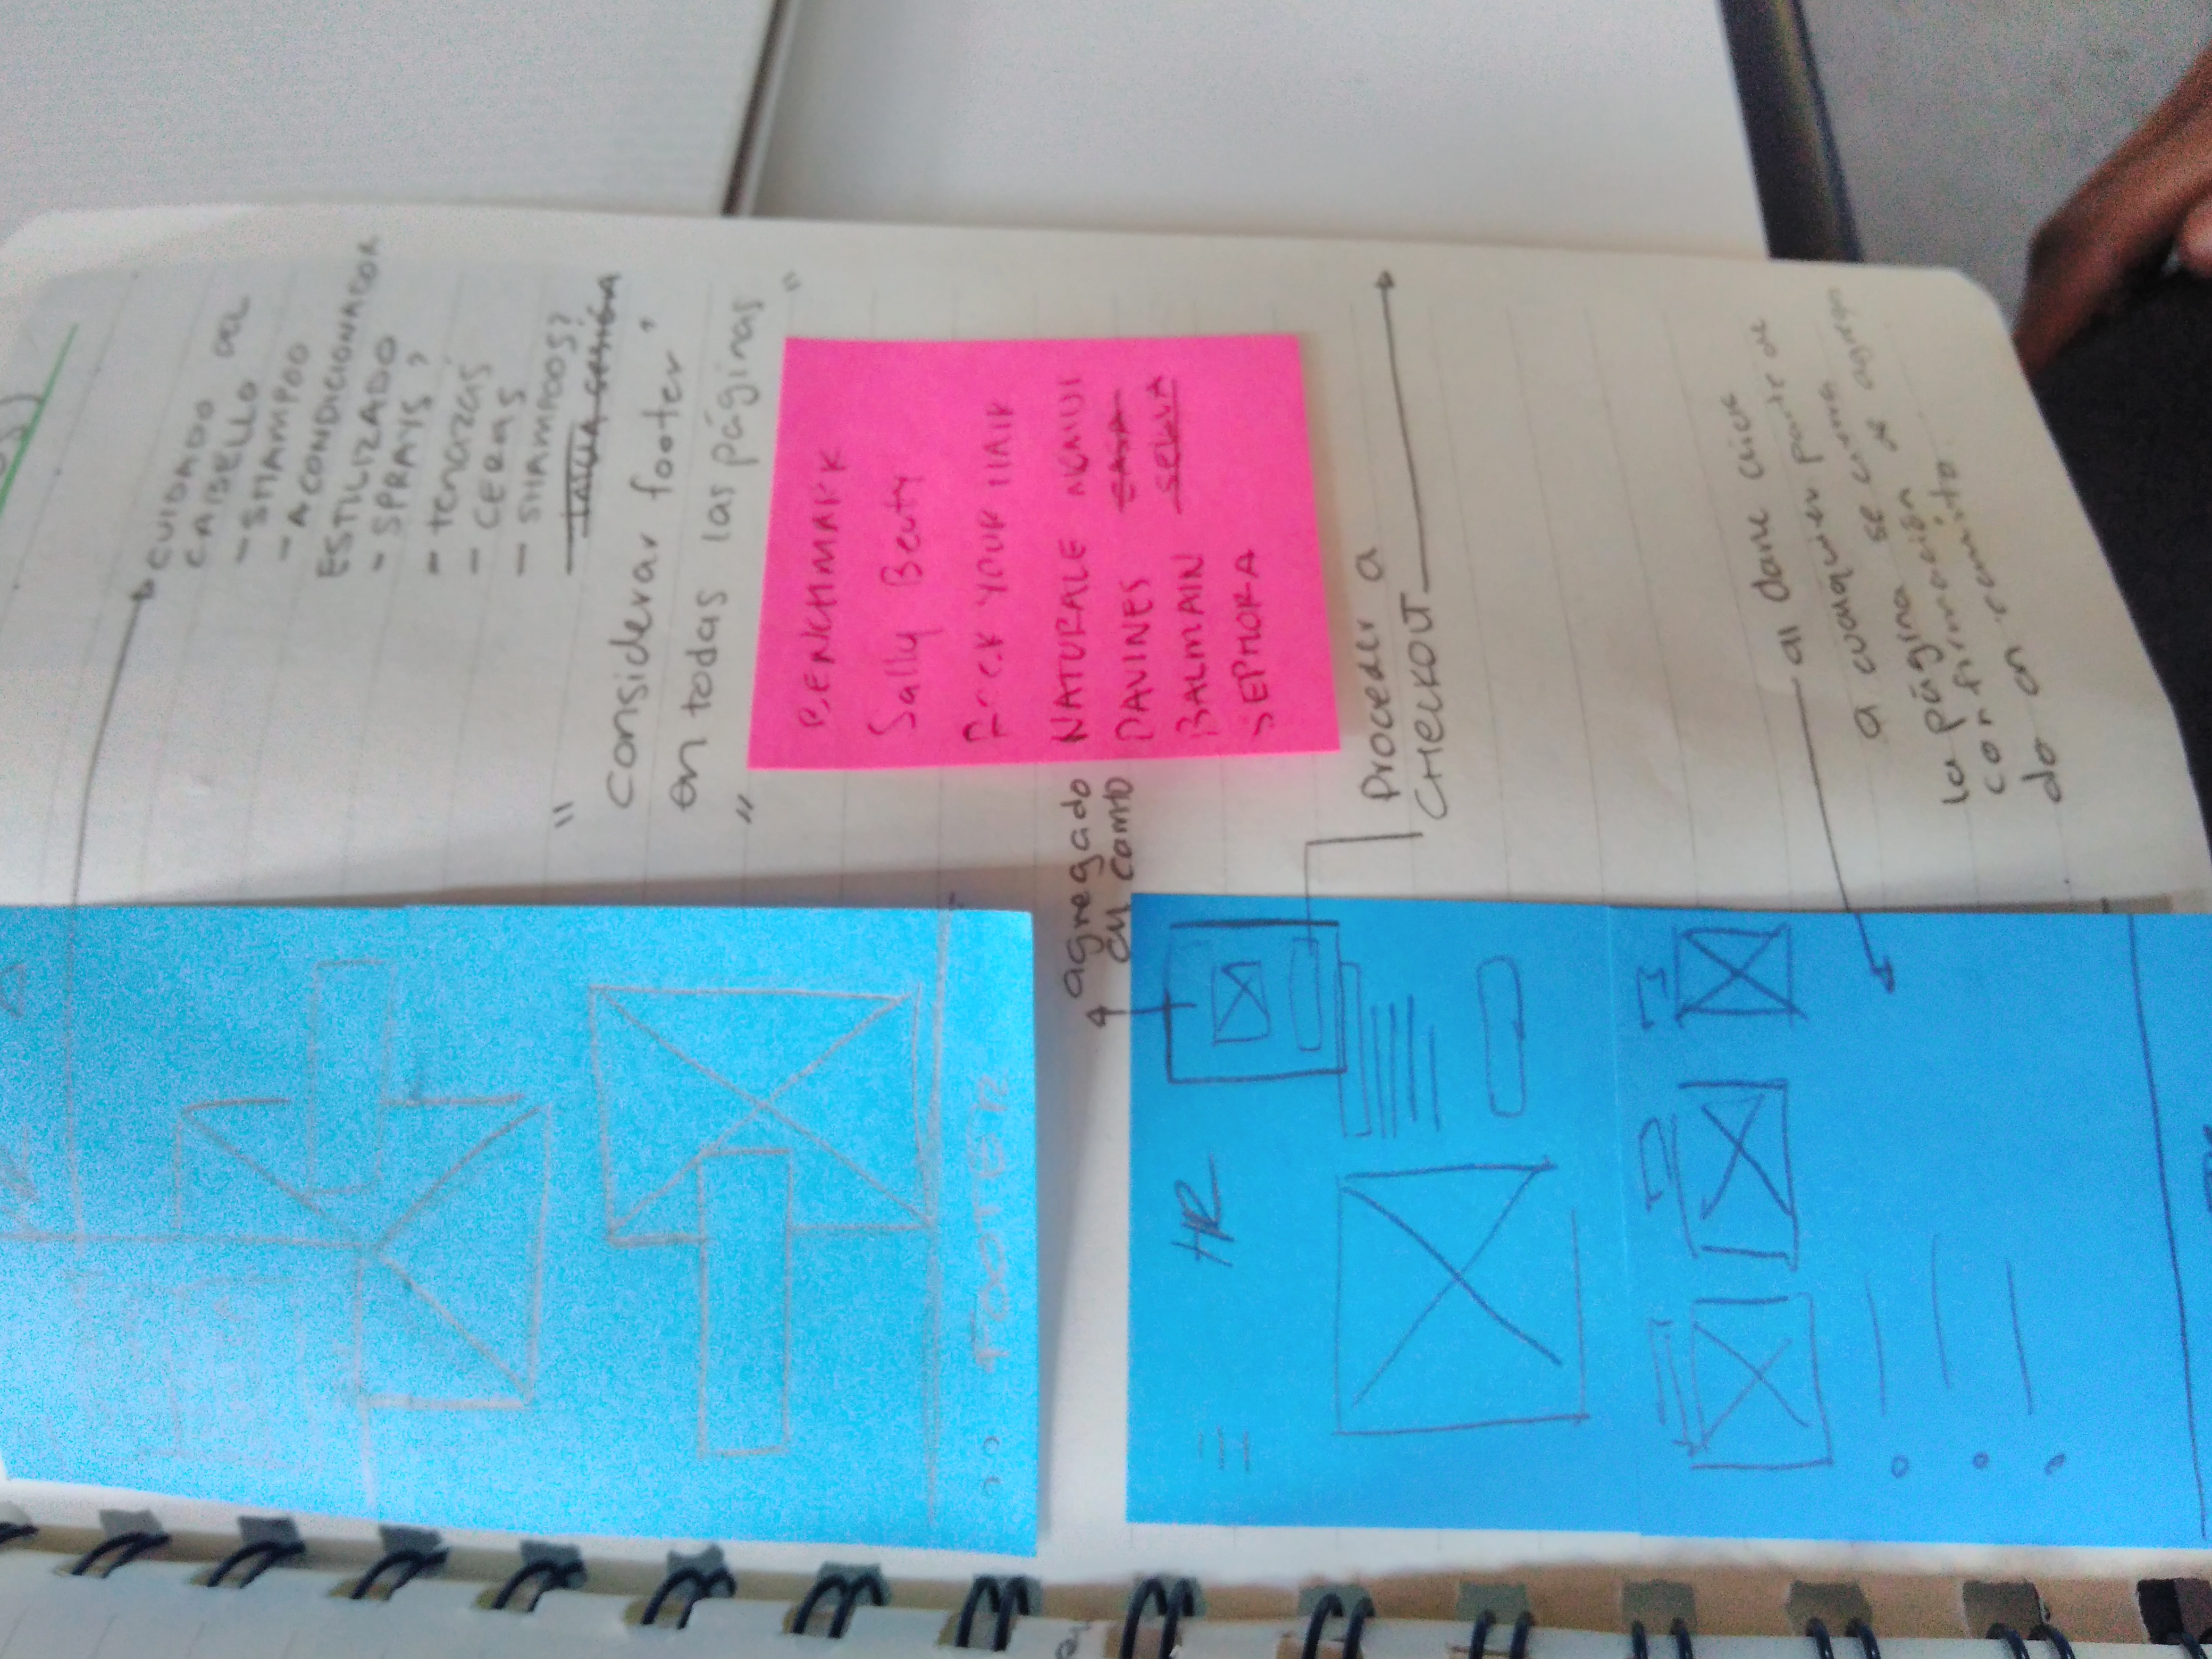 CUIDADO DEL
CABELLO
- SHAMPOO
- ACONDICIONADOR
ESTILIZADO
- SPRAYS ?
- tenazas
- CERAS
- SHAMPOOS?
"
considerar footer "
en todas las páginas
" "
BENCHMARK
Sally Beuty
ROCK YOUR HAIR
NATURALE
DAVINES CASA
BALMAIN SELVA
SEPHORA
FOOTER
agregado
en carrito
HR
Proceder a
CHECKOUT
al darle click
a cualquier parte de
la página se cierra
confirmación de agrega
do en carrito